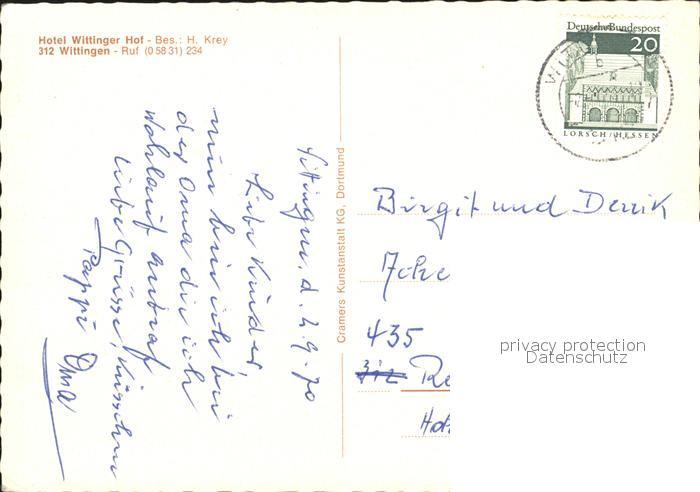 Hotel Wittinger Hof - Bes.: H. Krey
312 Wittingen - Ruf (0 58 31) 234
DeutscheBundespost
20
LORSCH/HESSEN
Wittingen, d. 2.9.70
Liebe Kinder,
nun bin ich bei
der Oma die ich
wohlauf antraf
Liebe Grüsse, Küsschen
Pappi Oma
Cramers Kunstanstalt KG, Dortmund
Birgit und Derrik
435
312 Re
privacy protection
Datenschutz